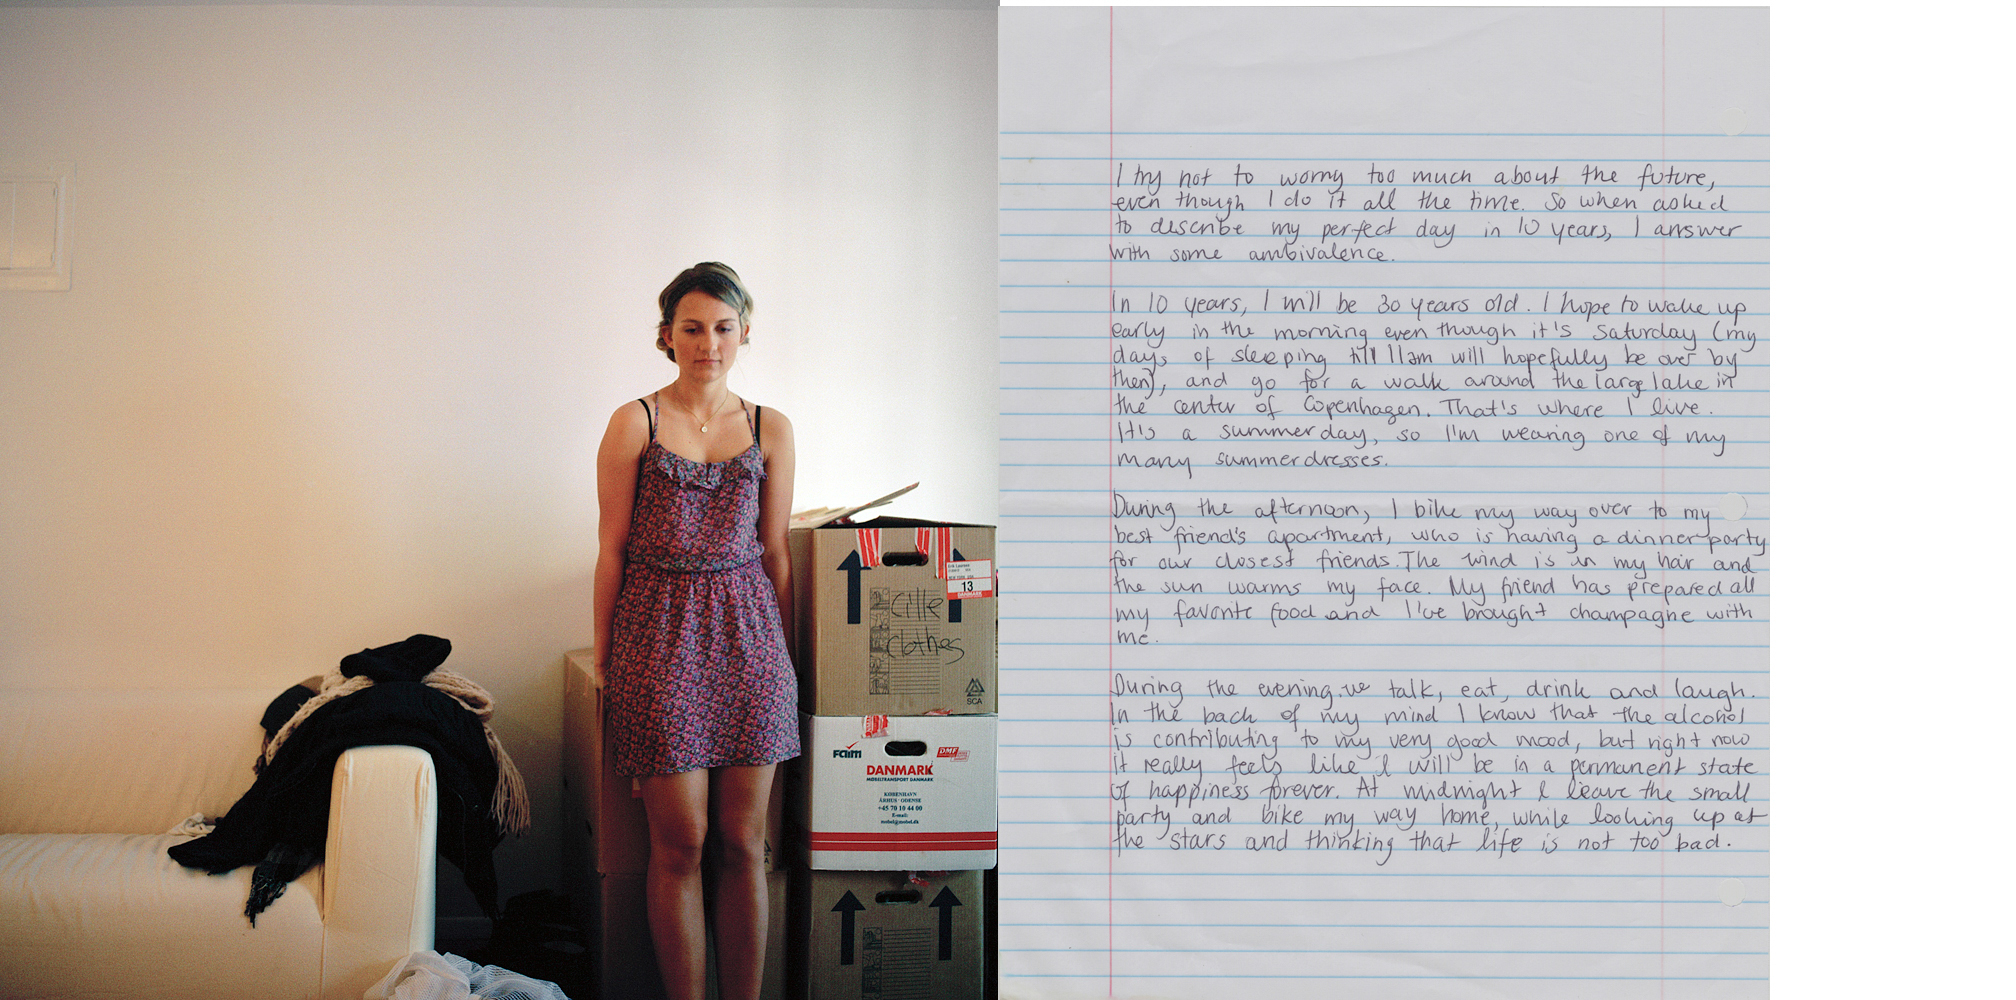 Cille
clothes
13
DANMARK
SCA
Faim
DMF
DANMARK
MØBELTRANSPORT DANMARK
KØBENHAVN
ÅRHUS · ODENSE
+45 70 10 44 00
E-mail:
I try not to worry too much about the future,
even though I do it all the time. So when asked
to describe my perfect day in 10 years, I answer
with some ambivalence.
In 10 years, I will be 30 years old. I hope to wake up
early in the morning even though it's saturday (my
days of sleeping till 11am will hopefully be over by
then), and go for a walk around the large lake in
the center of Copenhagen. That's where I live.
It's a summerday, so I'm wearing one of my
many summerdresses.
During the afternoon, I bike my way over to my
best friend's apartment, who is having a dinnerparty
for our closest friends. The wind is in my hair and
the sun warms my face. My friend has prepared all
my favorite food and I've brought champagne with
me.
During the evening, we talk, eat, drink and laugh.
In the back of my mind I know that the alcohol
is contributing to my very good mood, but right now
it really feels like I will be in a permanent state
of happiness forever. At midnight I leave the small
party and bike my way home, while looking up at
the stars and thinking that life is not too bad.